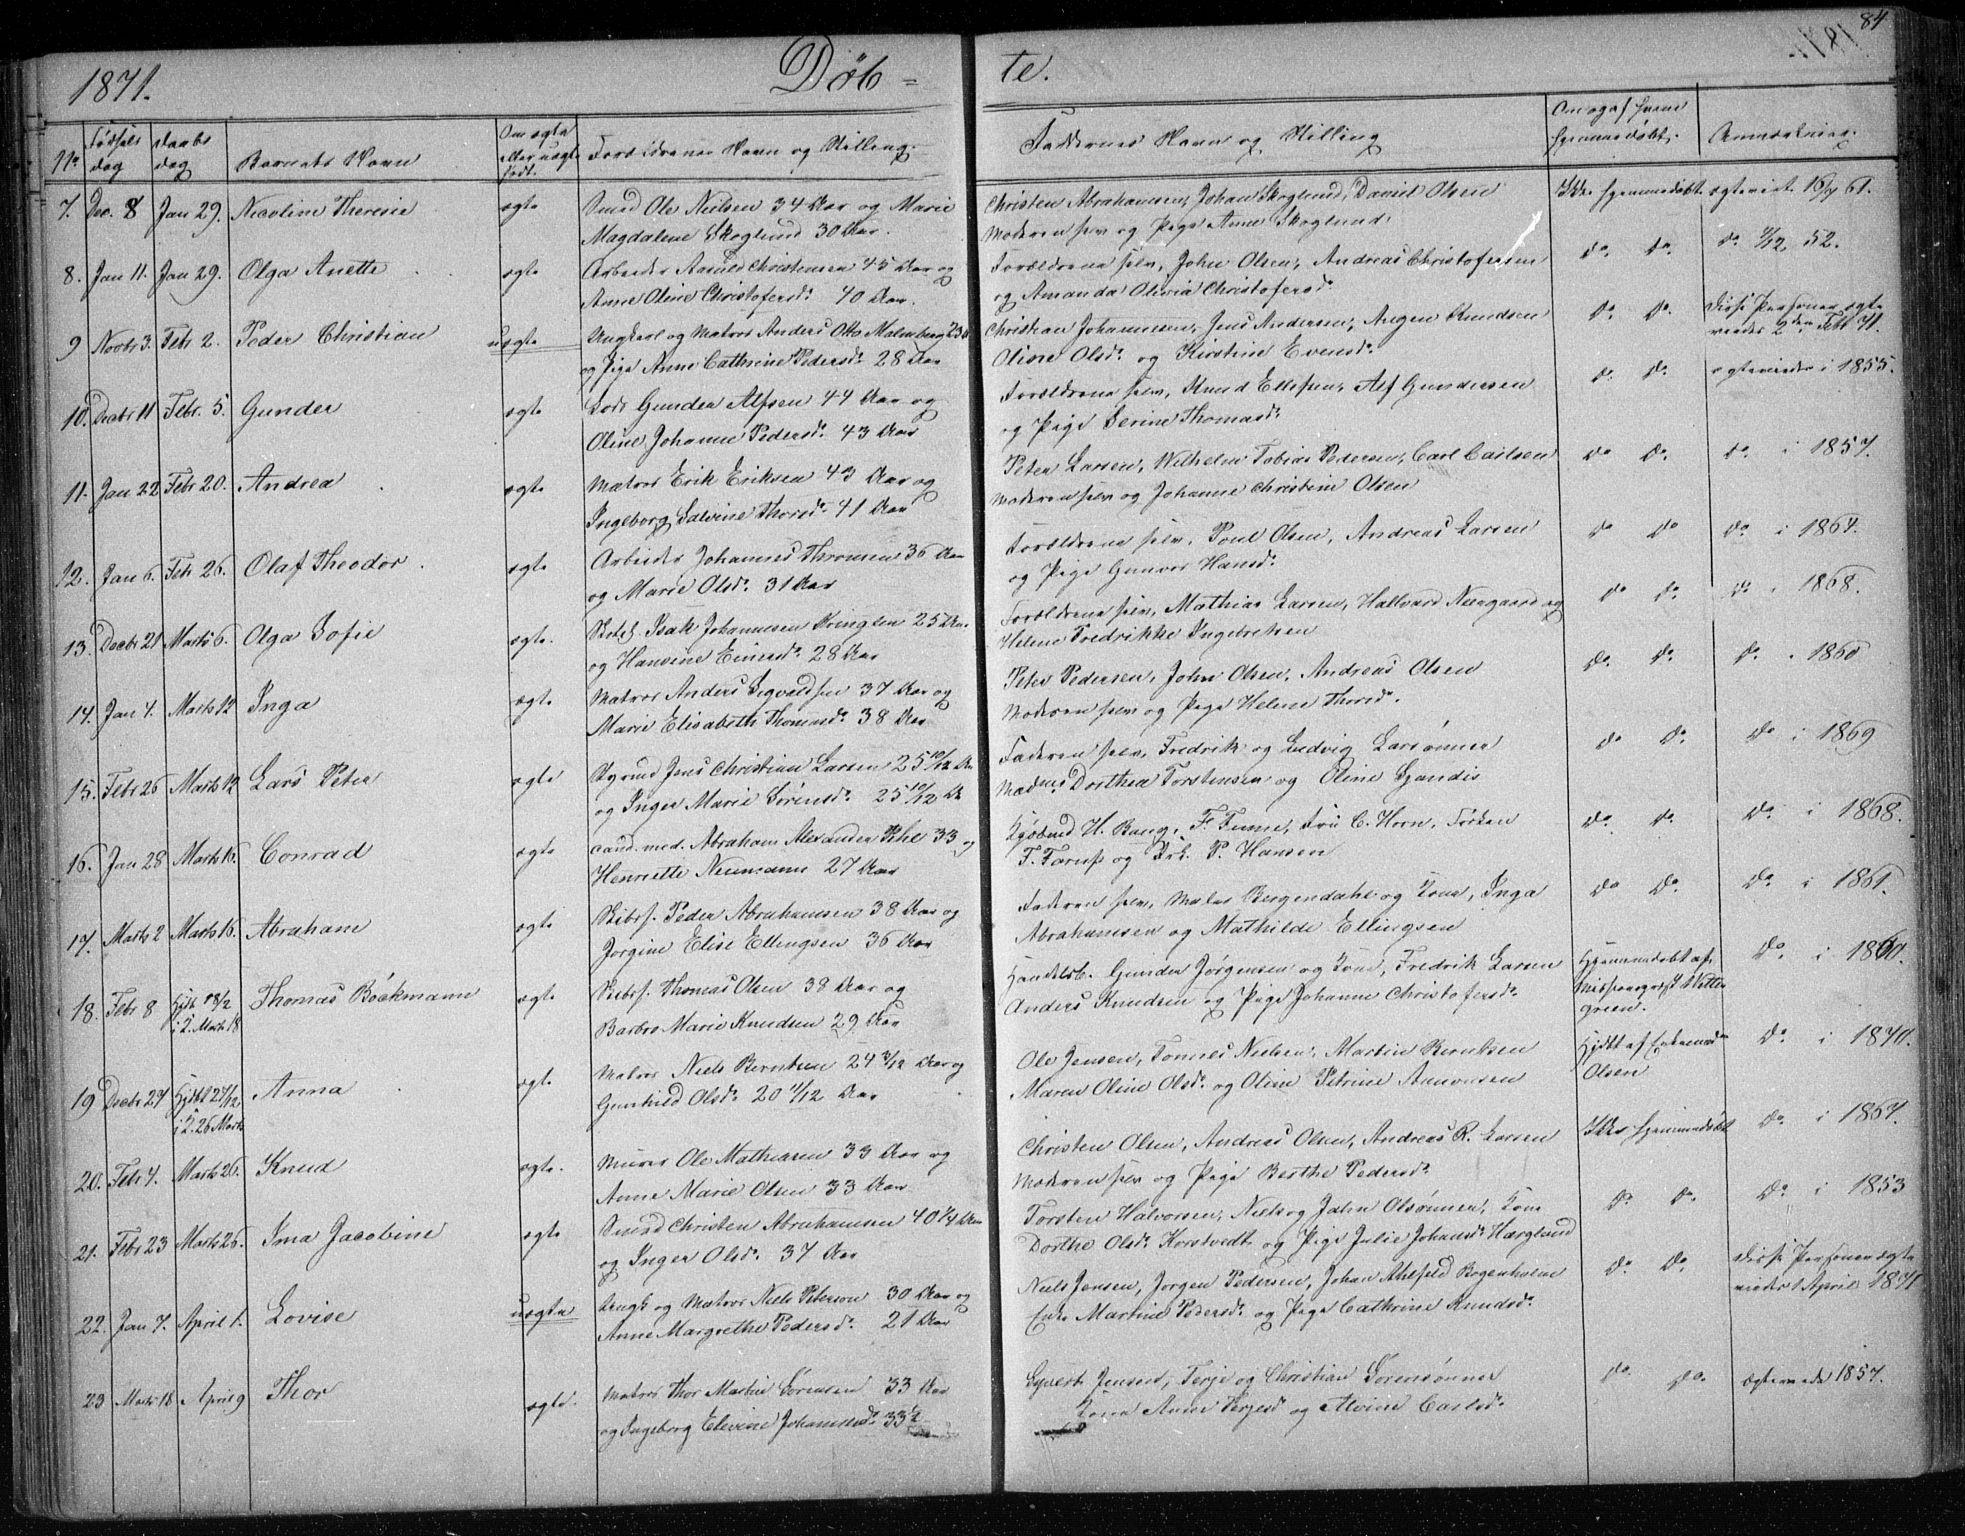 84
1871.
Døb-
te.
No
Fødsels dag
Daabs dag
Barnets Navn
Om ægte eller uægte født.
Forældrenes Navn og Stilling.
Faddernes Navn og Stilling
Om og af hvem hjemmedøbt.
Anmærkning.
7. Dec. 8 Jan 29. Nicoline Theresie ægte Smed Ole Nielsen 34 Aar og Marie
Magdalene Skoglund 30 Aar.
Christen Abrahamsen, Johan Skoglund, Daniel Olsen
Moderen selv og Pige Anne Skoglund.
Ikke hjemmedøbt
8. Jan 11. Jan 29. Olga Anette ægte Arbeider Arnuld Christensen 45 Aar og
Anne Oline Christofersd. 40 Aar.
Forældrene selv, John Olsen, Andreas Christofersen
og Amanda Olivia Christofersd.
do do do 52.
9 Novbr 3. Febr 2. Peder Christian uægte Ungkarl og Matros Anders Otto Malmberg
og Pige Anne Cathrine Pedersd. 28 Aar
Christian Johannesen, Jens Andersen, Augen Knudsen
Oline Olsd. og Kirstine Evensd.
do do Disse Personer ægte
viede 2den Febr 71.
10. Decbr 11 Febr. 5. Gunder ægte Lods Gunder Alfsen 44 Aar og
Oline Johanne Pedersd. 43 Aar
Forældrene selv, Knud Ellefsen, Alf Gundersen
og Pige Serine Thomasd.
do do ægteviede i 1855.
11. Jan 22 Febr 20. Andrea ægte Matros Erik Eriksen 43 Aar og
Ingeborg Salvine Thorsd. 41 Aar
Peter Larsen, Wilhelm Tobias Pedersen, Carl Carlsen
Moderen selv og Johanne Christine Olsen
do do do i 1857.
12. Jan 6. Febr 26. Olaf Theodor. ægte Arbeider Johannes Thronsen 36 Aar
og Marie Olsd. 31 Aar
Forældrene selv, Poul Olsen, Andreas Larsen
og Pige Gunvor Hansd.
do do do i 1864.
13. Decbr 21 Marts 6. Olga Sofie ægte. Isak Johannesen 25 Aar
og Hansine Einersd. 28 Aar
Forældrene selv, Mathias Larsen, Hallvard Næsgaard og
Helene Fredrikke Ingebretsen
do do do i 1868.
14. Jan 4. Marts 12 Inga ægte Matros Anders Sigvaldsen 37 Aar og
Marie Elisabeth Thomasd. 38 Aar
Peter Pedersen, John Olsen, Andreas Olsen
Moderen selv og Pige Helene Thorsd.
do do do i 1860
15. Febr 26 Marts 12 Lars Peter ægte Jens Christian Larsen 25 10/12 Aar
og Inger Marie Sørensd. 25 10/12 Aar
Faderen selv, Fredrik og Ludvig Larsønner
Dorthea Torstensen og Oline
do do do i 1869
16. Jan 28 Marts 16. Conrad ægte cand. med. Abraham Alexander 33 og
Henriette Neumann 27 Aar
Kjøbmd H. Bang, F. Fr. C. Horn, Frøken
F. og Frk. P. Hansen
do do do i 1868.
17. Marts 2 Marts 16. Abraham ægte Skibsf. Peder Abrahamsen 38 Aar og
Jørgine Elise Ellingsen 36 Aar
Faderen selv, Maler Bergendahl og Kone, Inga
Abrahamsen og Mathilde Ellingsen
do do do i 1861.
18. Febr 8 Hjdt 18/2 i K. Marts 18 Thomas Böckmann ægte Skibsf. Thomas Olsen 38 Aar og
Barbro Marie Knudsen 29 Aar
Handelsb. Gunder Jørgensen og Kone, Fredrik Larsen
Anders Knudsen og Pige Johanne Christofersd.
Hjemmedøbt af
Missionspræst Witten
green.
do i 1860.
19 Decbr 24 Hjdt 27/12, i K. 26 Marts Anna ægte Matros Niels Berntsen 24 3/12 Aar og
Gunhild Olsd. 20 1/12 Aar
Ole Jensen, Tønnes Nielsen, Martin Berntsen
Maren Oline Olsd. og Oline Petrine Aanonsen
Hjdt af
Olsen
do i 1870.
20. Febr 4. Marts 26. Knud ægte. Murer Ole Mathiasen 33 Aar og
Anne Marie Olsen 33 Aar
Christen Olsen, Andreas Olsen, Andreas R. Larsen
Moderen selv og Pige Berthe Pedersd.
Ikke hjemmedøbt do i 1864.
21. Febr 23 Marts 26. Ima Jacobine ægte Smed Christen Abrahamsen 40 1/4 Aar
og Inger Olsd. 37 Aar
Torsten Halvorsen, Niels og John Olsønner, Kone
Dorthe Olsd. Korstvedt og Pige Julie Johansd. Hæglund
do do do i 1853
22. Jan 7. April 1. Lovise uægte Ungk og Matros Niels Peterson 30 Aar og
Anne Margrethe Pedersd. 21 Aar
Niels Jensen, Jørgen Pedersen, Johan Ahlfeld Bogenholm
Enke Martine Pedersd. og Pige Cathrine Knudsd.
do do Disse Personer ægte
viede 1 April 1871
23 Marts 18 April 9 Thor ægte. Matros Thor Martin Sørensen 33 Aar
og Ingeborg Elevine Johannesd. 33 1/2
Syvert Jensen, Terje og Christian Sørensønner
Kone Anne Terjesd. og Alvine Carlsd.
do do ægteviede 1857.